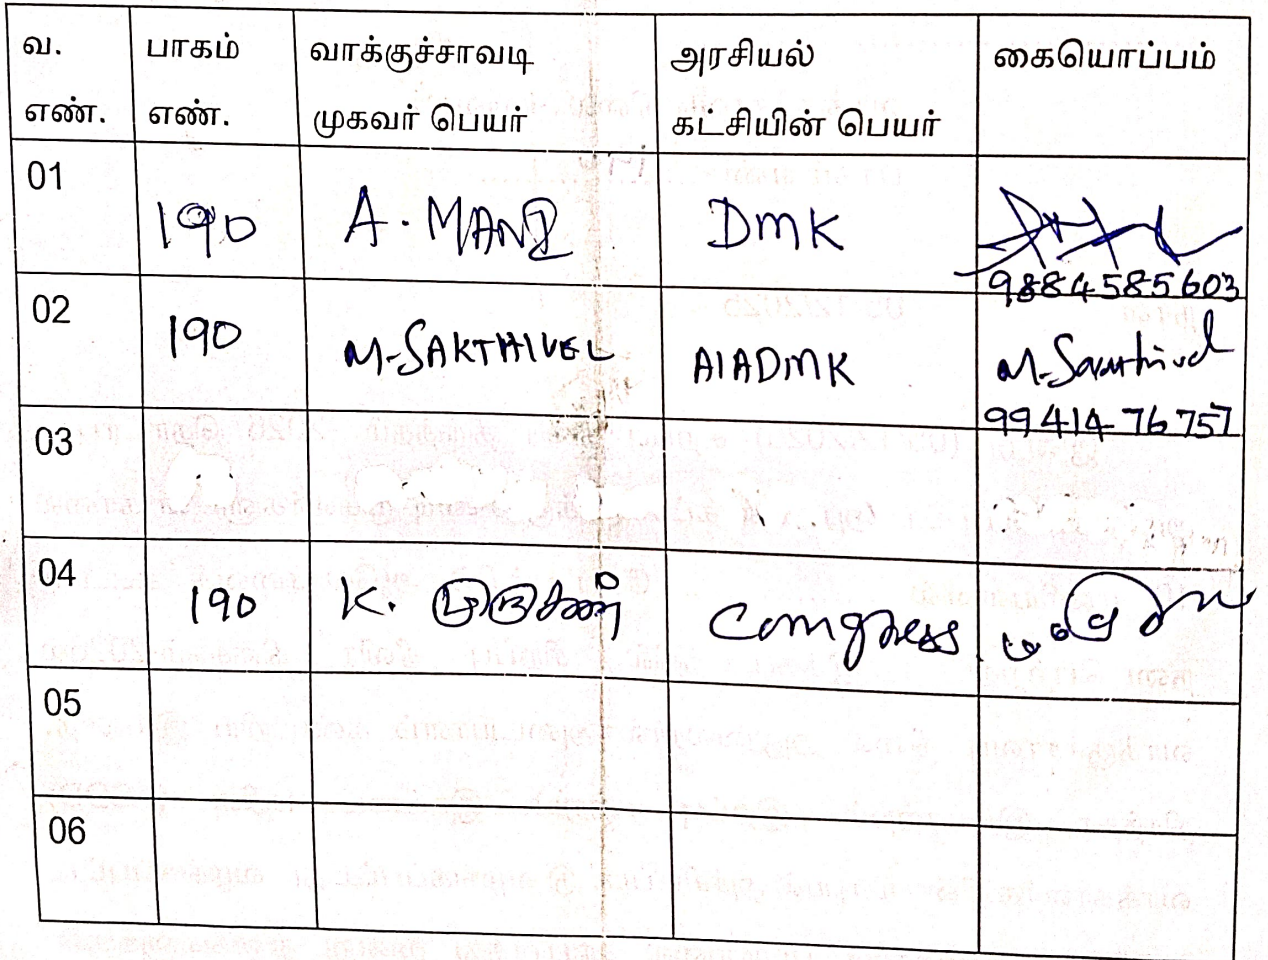 வ. எண். பாகம் எண். வாக்குச்சாவடி முகவர் பெயர் அரசியல் கட்சியின் பெயர் கையொப்பம்
01 190 A. MANI DMK
9884585603
02 190 M-SAKTHIVEL AIADMK M-Sakthivel
99414 76757
03
04 190 K. முருகன் Congress
05
06